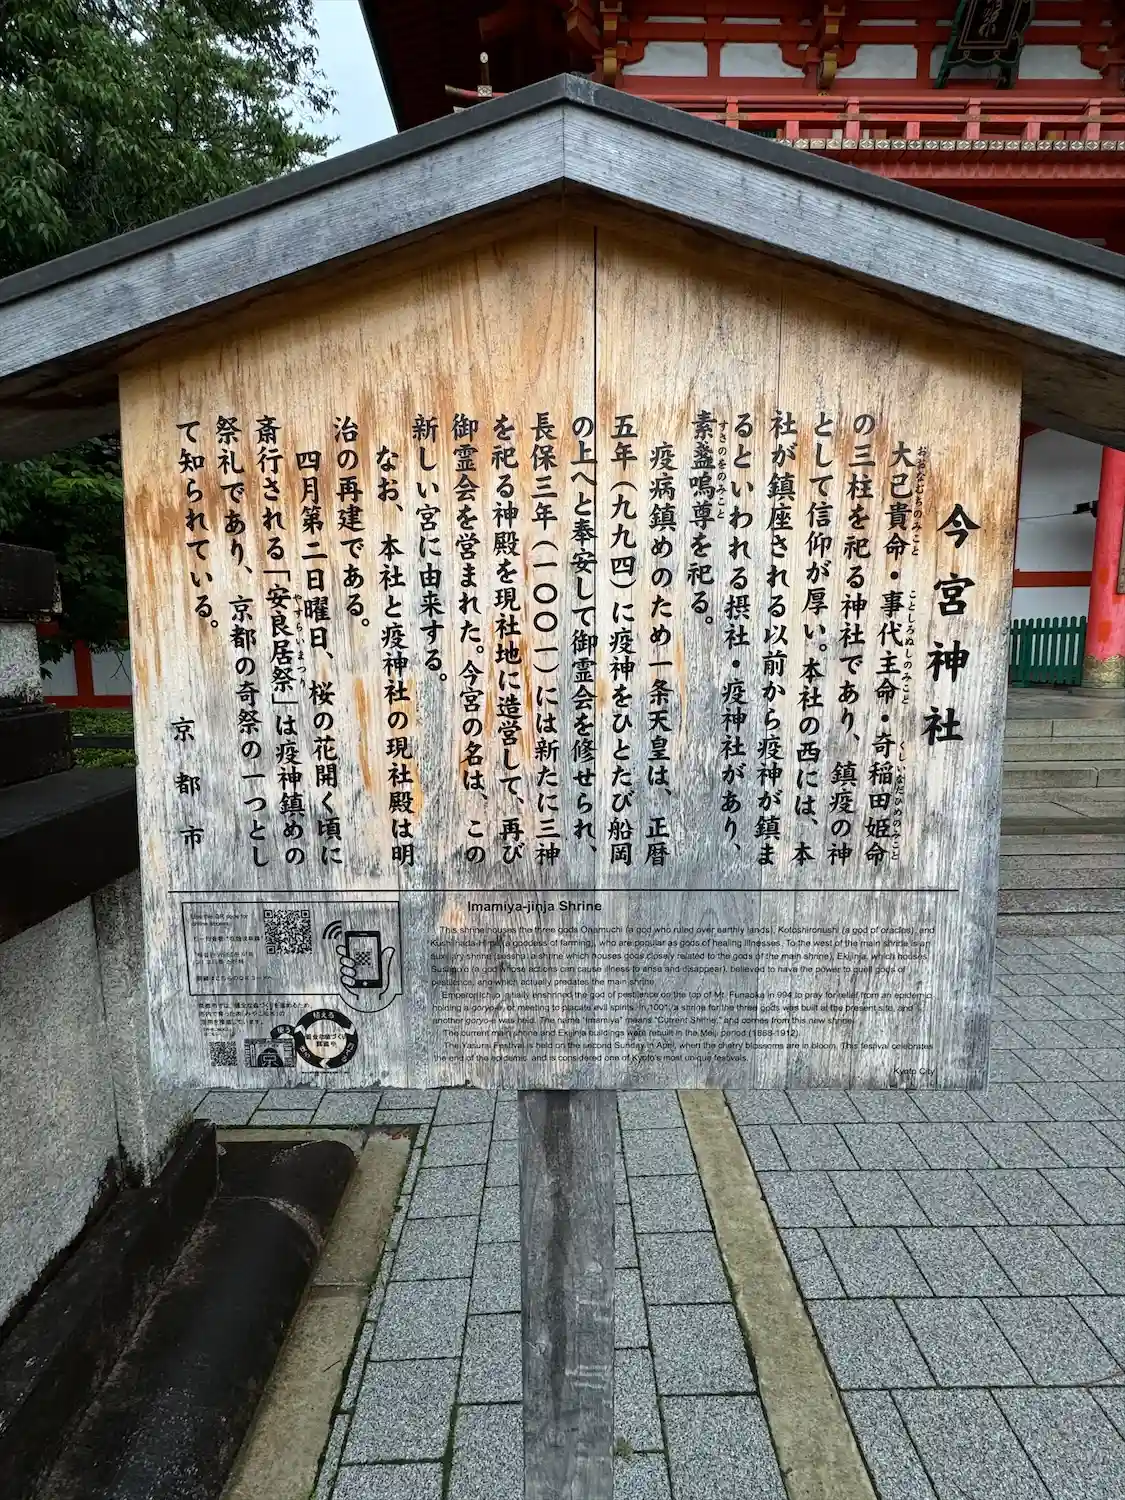 今宮神社
大己貴命・事代主命・奇稲田姫命
おおなむちのみこと
ことしろぬしのみこと
くしいなだひめのみこと
の三柱を祀る神社であり、鎮疫の神
として信仰が厚い。本社の西には、本
社が鎮座される以前から疫神が鎮ま
るといわれる摂社・疫神社があり、
素盞嗚尊を祀る。
すさのをのみこと
疫病鎮めのため一条天皇は、正暦
五年(九九四)に疫神をひとたび船岡
の上へと奉安して御霊会を修せられ、
長保三年(一〇〇一)には新たに三神
を祀る神殿を現社地に造営して、再び
御霊会を営まれた。今宮の名は、この
新しい宮に由来する。
なお、本社と疫神社の現社殿は明
治の再建である。
四月第二日曜日、桜の花開く頃に
斎行される「安良居祭」は疫神鎮めの
やすらいまつり
祭礼であり、京都の奇祭の一つとし
て知られている。
京都市
Imamiya-jinja Shrine
This shrine houses the three gods Onamuchi (a god who ruled over earthly lands), Kotoshironushi (a god of oracles), and
Kushinada-Hime (a goddess of farming), who are popular as gods of healing illnesses. To the west of the main shrine is an
auxiliary shrine (sessha: a shrine which houses gods closely related to the gods of the main shrine), Ekijinja, which houses
Susano'o (a god whose actions can cause illness to arise and disappear), believed to have the power to quell gods of
pestilence, and which actually predates the main shrine.
Emperor Ichijo initially enshrined the god of pestilence on the top of Mt. Funaoka in 994 to pray for relief from an epidemic,
holding a goryo-e, or meeting to placate evil spirits. In 1001, a shrine for the three gods was built at the present site, and
another goryo-e was held. The name "Imamiya" means "Current Shrine," and comes from this new shrine.
The current main shrine and Ekijinja buildings were rebuilt in the Meiji period (1868-1912).
The Yasurai Festival is held on the second Sunday in April, when the cherry blossoms are in bloom. This festival celebrates
the end of the epidemic, and is considered one of Kyoto's most unique festivals.
Kyoto City
Use the QR code for